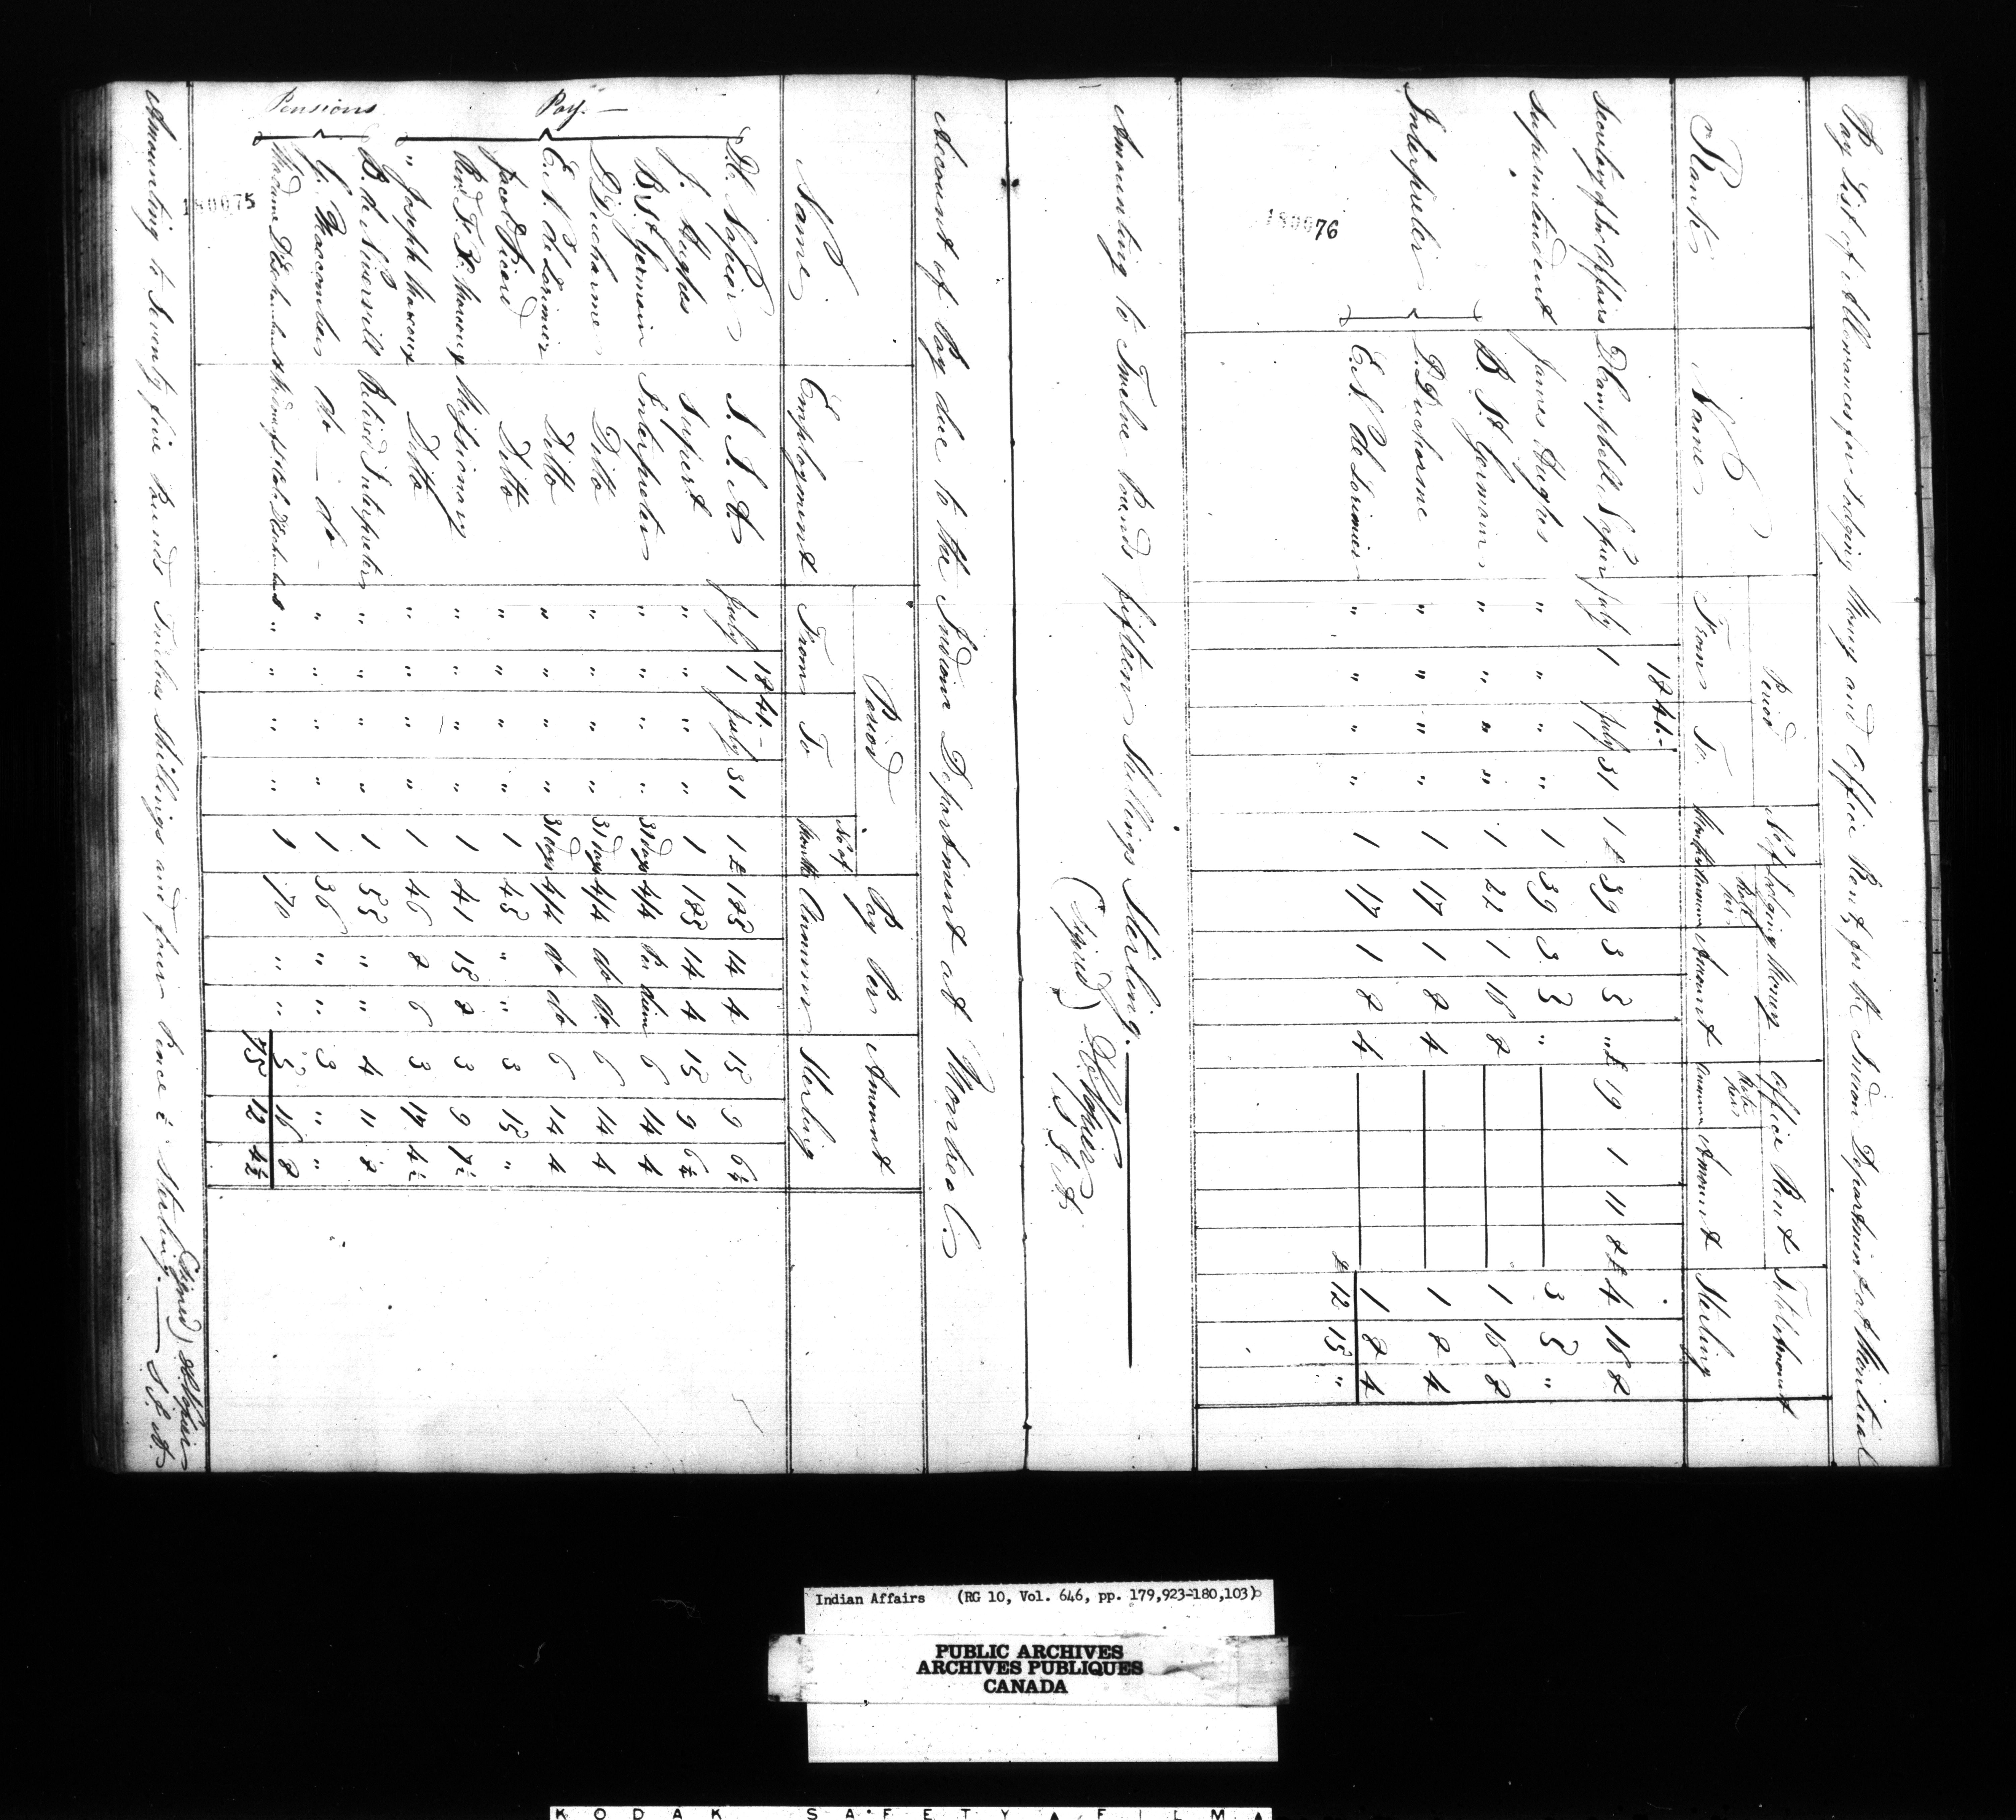 Pay List of Allowances for Lodging Money and Office Rent, for the Indian Department at Montreal
Rank Name Period Lodging Money Office Rent Total Amount
From To No of Months Rate per Annum Amount Rate per Annum Amount Sterling
1841.-
Secretary for Affairs D Campbell Napier July 1 July 31 1 £39 3 5 " £19 1 11 8 £4 16 8
Superintendent James Hughes " " " " 1 39 3 5 " 3 5 "
Interpreter B. St. Germain " " " " 1 22 1 16 8 1 16 8
D. Ducharme " " " " 1 17 1 8 4 1 8 4
E. N. de Lorimier " " " " 1 17 1 8 4 1 8 4
£ 12 15 "
180076
Amounting to Twelve Pounds fifteen Shillings Sterling.
(Signed) D C Napier
S. I. A.
Account of Pay due to the Indian Department at Montreal.
Name Employment Period Pay Per Annum Amount Sterling
From To No of Months
1841.-
Pay.
D.C. Napier S. I. A. July 1 July 31 1 £185 14 4 15 9 6¼
J. Hughes Supert " " " " 1 185 14 4 15 9 6¼
B. St. Germain Interpreter " " " " 31 days 4/4 Per diem 6 14 4
D. Ducharme Ditto " " " " 31 days 4/4 do do 6 14 4
E. N. de Lorimier Ditto " " " " 31 days 4/4 do do 6 14 4
Jacob Picard Ditto " " " " 1 45 " " 3 15 "
Revd F. X. Marcoux Missionary " " " " 1 41 15 8 3 9 7½
" Joseph Marcoux Ditto " " " " 1 46 8 6 3 17 4½
Pensions
B. de Niverville Retired Interpreter " " " " 1 55 " " 4 11 8
G. Maccomber do - do - " " " " 1 36 " " 3 " "
Madame " " " " 1 70 " " 5 16 8
75 12 4½
180075
Amounting to Seventy five Pounds Twelve Shillings and four Pence ½ Sterling.
(Signed) D C Napier
S. I. A.
Indian Affairs (RG 10, Vol. 646, pp. 179,923-180,103)
PUBLIC ARCHIVES
ARCHIVES PUBLIQUES
CANADA
KODAK SAFETY FILM